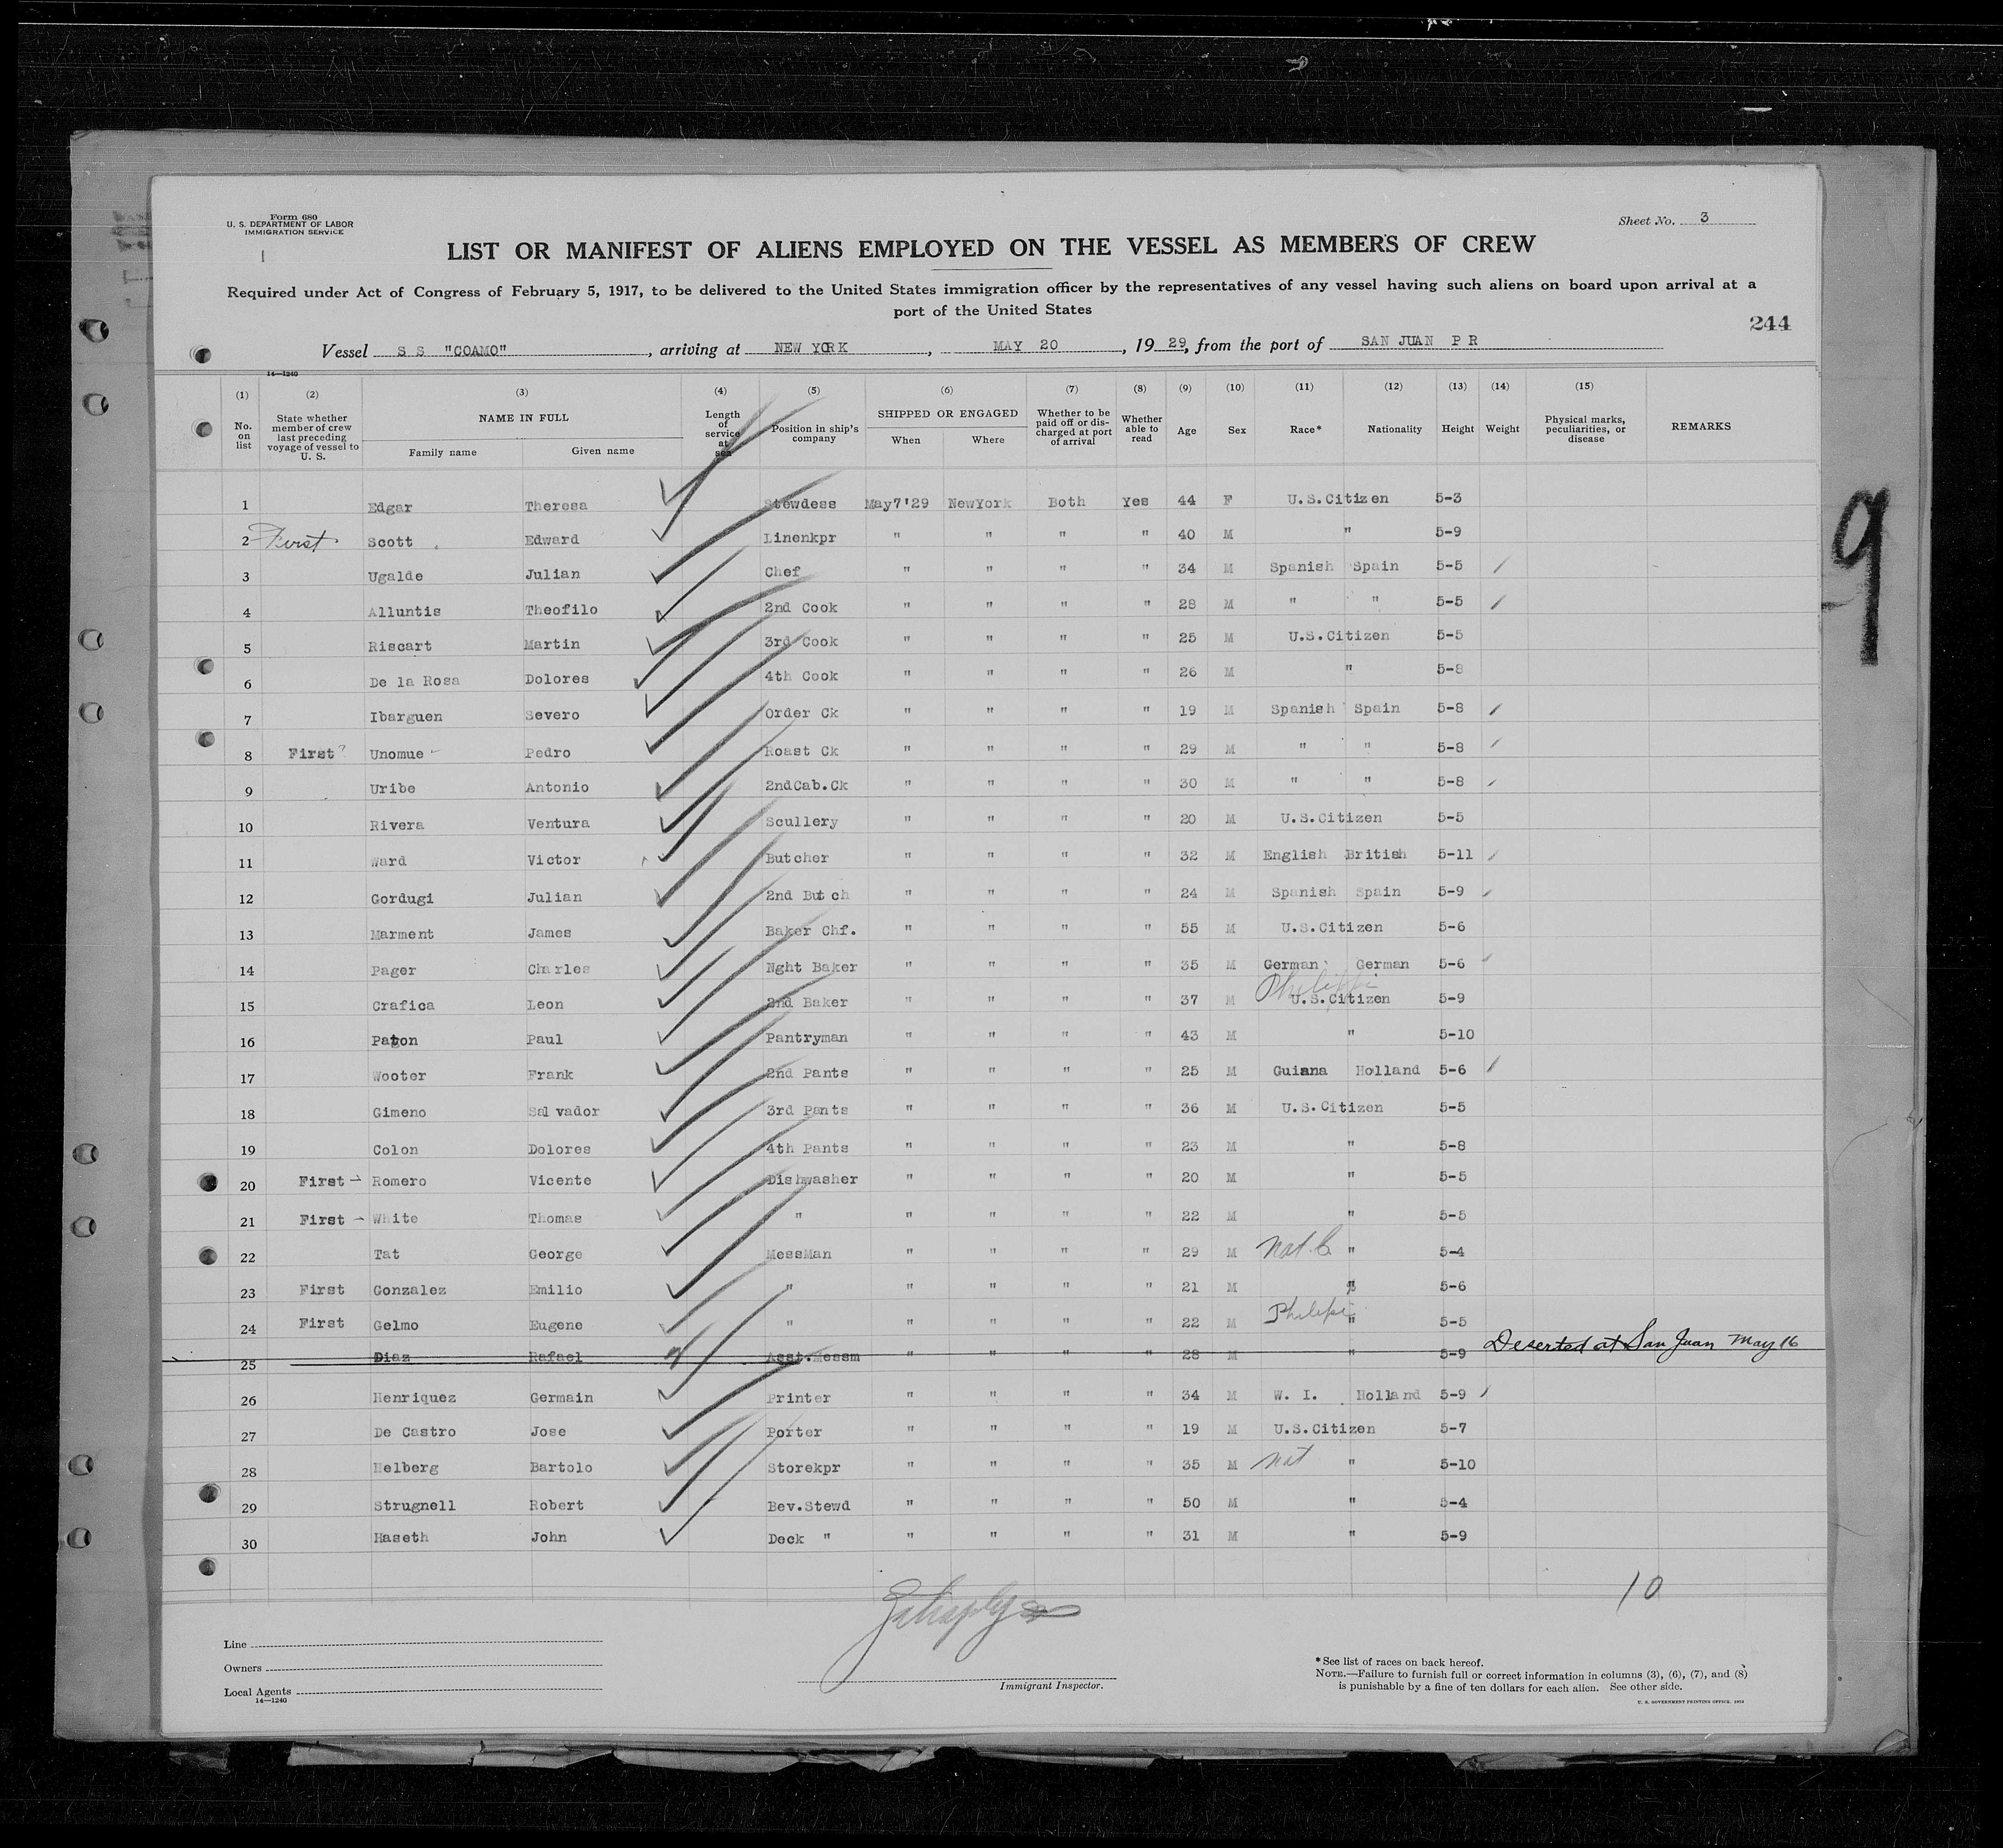 Form 680
U. S. DEPARTMENT OF LABOR
IMMIGRATION SERVICE
Sheet No. 3
LIST OR MANIFEST OF ALIENS EMPLOYED ON THE VESSEL AS MEMBERS OF CREW
Required under Act of Congress of February 5, 1917, to be delivered to the United States immigration officer by the representatives of any vessel having such aliens on board upon arrival at a
port of the United States
244
Vessel S S "COAMO", arriving at NEW YORK, MAY 20, 1929, from the port of SAN JUAN P R
14—1240
(1) (2) (3) (4) (5) (6) (7) (8) (9) (10) (11) (12) (13) (14) (15)
No. on list State whether member of crew last preceding voyage of vessel to U. S. NAME IN FULL Family name Given name Length of service at sea Position in ship's company SHIPPED OR ENGAGED When Where Whether to be paid off or discharged at port of arrival Whether able to read Age Sex Race* Nationality Height Weight Physical marks, peculiarities, or disease REMARKS
1 Edgar Theresa Stewdess May7'29 NewYork Both Yes 44 F U.S.Citizen 5-3
2 First Scott Edward Linenkpr " " " " 40 M " 5-9
3 Ugalde Julian Chef " " " " 34 M Spanish Spain 5-5
4 Alluntis Theofilo 2nd Cook " " " " 28 M " " 5-5
5 Riscart Martin 3rd Cook " " " " 25 M U.S.Citizen 5-5
6 De la Rosa Dolores 4th Cook " " " " 26 M " 5-8
7 Ibarguen Severo Order Ck " " " " 19 M Spanish Spain 5-8
8 First? Unomue Pedro Roast Ck " " " " 29 M " " 5-8
9 Uribe Antonio 2ndCab.Ck " " " " 30 M " " 5-8
10 Rivera Ventura Scullery " " " " 20 M U.S.Citizen 5-5
11 Ward Victor Butcher " " " " 32 M English British 5-11
12 Gordugi Julian 2nd Butch " " " " 24 M Spanish Spain 5-9
13 Marment James Baker Chf. " " " " 55 M U.S.Citizen 5-6
14 Pager Charles Nght Baker " " " " 35 M German German 5-6
15 Crafica Leon 2nd Baker " " " " 37 M Philippi U.S.Citizen 5-9
16 Paton Paul Pantryman " " " " 43 M " 5-10
17 Wooter Frank 2nd Pants " " " " 25 M Guiana Holland 5-6
18 Gimeno Salvador 3rd Pants " " " " 36 M U.S.Citizen 5-5
19 Colon Dolores 4th Pants " " " " 23 M " 5-8
20 First - Romero Vicente Dishwasher " " " " 20 M " 5-5
21 First - White Thomas " " " " " 22 M " 5-5
22 Tat George MessMan " " " " 29 M Nat. C " 5-4
23 First Gonzalez Emilio " " " " " 21 M " 5-6
24 First Gelmo Eugene " " " " " 22 M " 5-5
25 Diaz Rafael Asst.Messm " " " " 28 M " 5-9 Deserted at San Juan May 16
26 Henriquez Germain Printer " " " " 34 M W. I. Holland 5-9
27 De Castro Jose Porter " " " " 19 M U.S.Citizen 5-7
28 Helberg Bartolo Storekpr " " " " 35 M Nat " 5-10
29 Strugnell Robert Bev.Stewd " " " " 50 M " 5-4
30 Haseth John Deck " " " " " 31 M " 5-9
10
9
Line
Owners
Local Agents
14—1240
Immigrant Inspector.
*See list of races on back hereof.
NOTE.—Failure to furnish full or correct information in columns (3), (6), (7), and (8)
is punishable by a fine of ten dollars for each alien. See other side.
U. S. GOVERNMENT PRINTING OFFICE